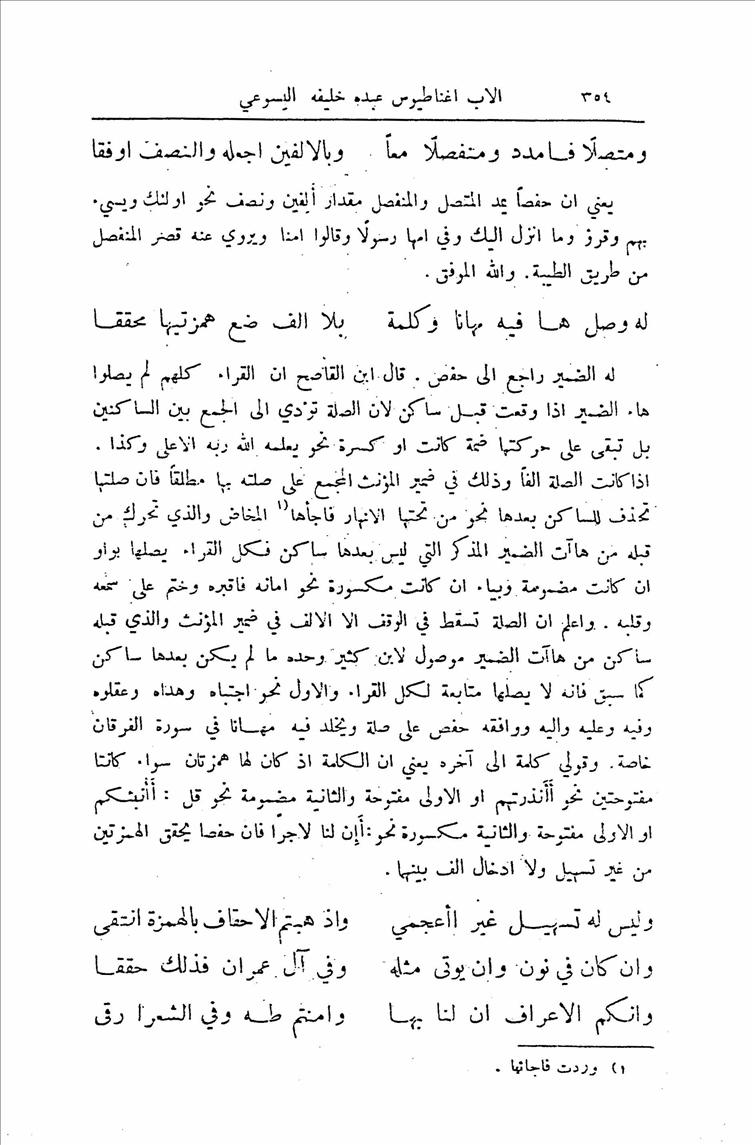 ٣٥٤ الاب اغناطيوس عبده خليفه اليسوعي
ومتصلًا فامدد ومنفصلًا معاً وبالالفين اجعله والنصف اوفقا
يعني ان حفصاً يمد المتصل والمنفصل مقدار ألِفين ونصف نحو اولئك ويسيء
بهم وقروء وما انزل اليك وفي امها رسولًا وقالوا امنا ويروي عنه قصر المنفصل
من طريق الطيبة. والله الموفق.
له وصل ها فيه مهانا وكلمة بلا الف ضع همزتيها محققا
له الضمير راجع الى حفص. قال ابن القاصح ان القراء كلهم لم يصلوا
هاء الضمير اذا وقعت قبل ساكن لان الصلة تؤدي الى الجمع بين الساكنين
بل تبقى على حركتها ضمة كانت او كسرة نحو يعلمه الله ربه الاعلى وكذا.
اذا كانت الصلة الفاً وذلك في ضمير المؤنث المجمع على صلته بها مطلقاً فان صلتها
تحذف للساكن بعدها نحو من تحتها الانهار فاجأها١) المخاض والذي تحرك من
قبله من هاآت الضمير المذكر التي ليس بعدها ساكن فكل القراء يصلها بواو
ان كانت مضمومة وبياء ان كانت مكسورة نحو اماته فاقبره وختم على سمعه
وقلبه. واعلم ان الصلة تسقط في الوقف الا الالف في ضمير المؤنث والذي قبله
ساكن من هاآت الضمير موصول لابن كثير وحده ما لم يكن بعدها ساكن
كما سبق فانه لا يصلها متابعة لكل القراء والاول نحو اجتباه وهداه وعقلوه
وفيه وعليه واليه ووافقه حفص على صلة ويخلد فيه مهانا في سورة الفرقان
خاصة. وقولي كلمة الى آخره يعني ان الكلمة اذ كان لها همزتان سواء كانتا
مفتوحتين نحو أأنذرتهم او الاولى مفتوحة والثانية مضمومة نحو قل : أأنبئكم
او الاولى مفتوحة والثانية مكسورة نحو: أإن لنا لاجرًا فان حفصا يحقق الهمزتين
من غير تسهيل ولا ادخال الف بينها.
وليس له تسهيل غير اأعجمي واذهبتم الاحقاف بالهمزة انتقى
وان كان في نون وان يوتى مثله وفي آل عمران فذلك حققا
وانكم الاعراف ان لنا بها وامنتم طه وفي الشعرا رقى
١) وردت فاجائها.